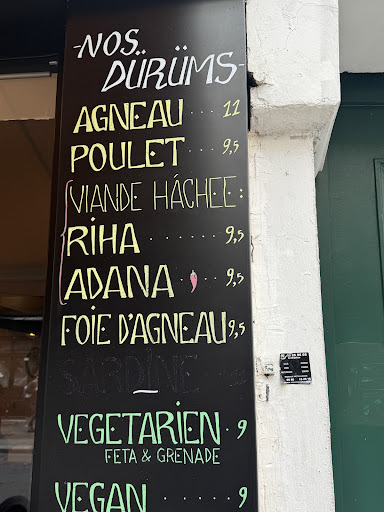 -NOS
DÜRÜMS-
AGNEAU ... 11
POULET .. 9,5
VIANDE HÁCHEE:
RIHA ...... 9,5
ADANA .. 9,5
FOIE D'AGNEAU 9,5
SARDINE
VEGETARIEN . 9
FETA & GRENADE
VEGAN ..... 9